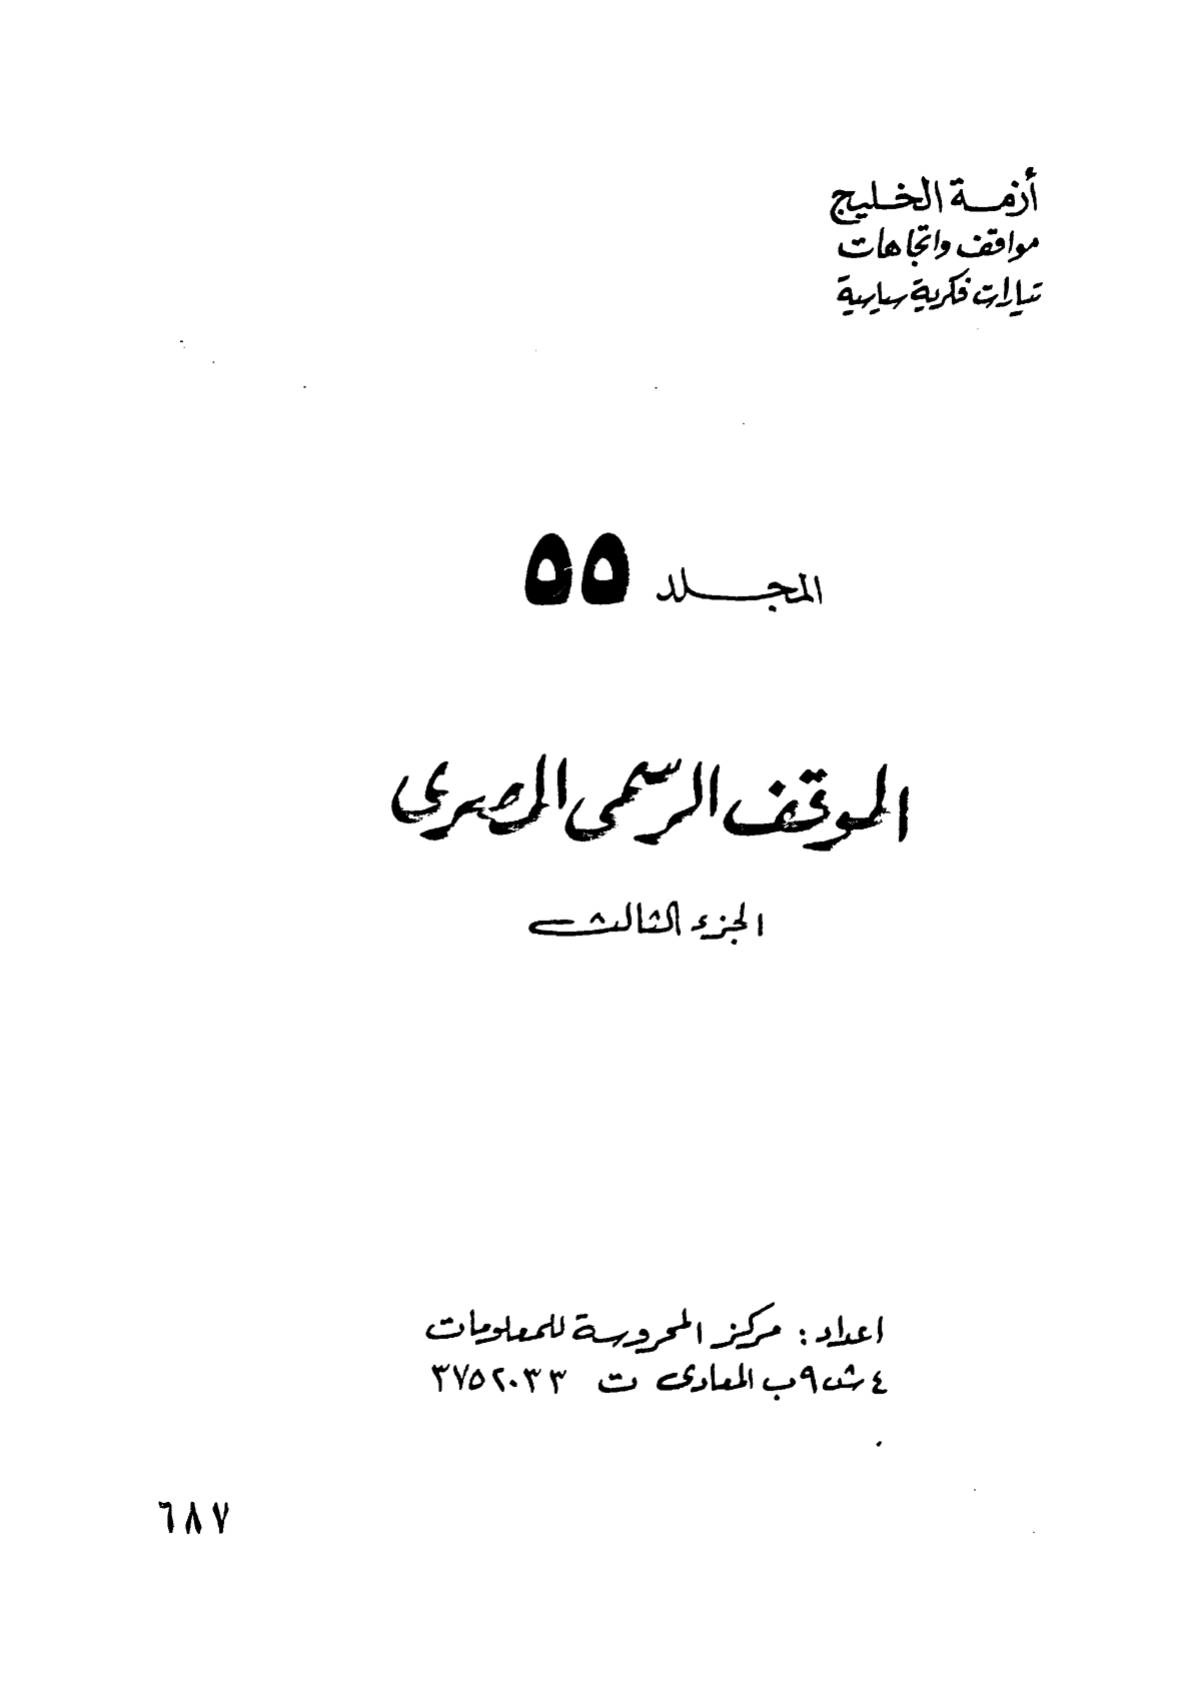 أزمة الخليج
مواقف واتجاهات
تيارات فكرية سياسية
المجلد ٥٥
الموقف الرسمى المصرى
الجزء الثالث
اعداد : مركز المحروسة للمعلومات
٤ ش ٩ب المعادى ت ٣٧٥٢٠٣٣
٦٨٧